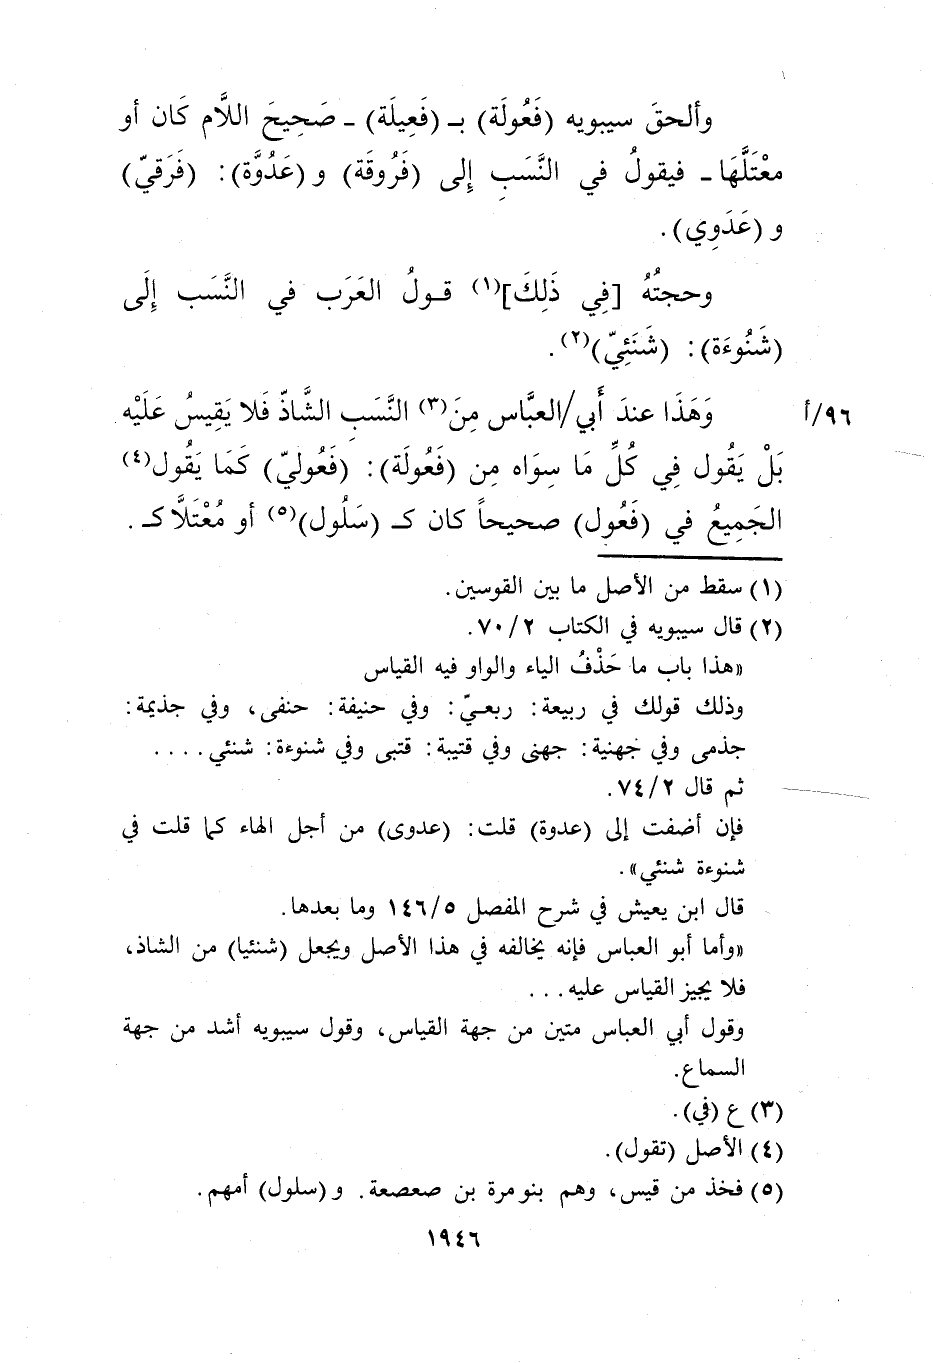 وألحقَ سيبويه (فَعُولَة) بـ (فَعِيلَة) ـ صَحِيحَ اللاَّم كَان أو
معْتَلَّهَا ـ فيقولُ في النَّسَبِ إِلى (فَرُوقَة) و (عَدُوَّة): (فَرَقيّ)
و (عَدَوِي).
وحجتُهُ [فِي ذَلِكَ](١) قولُ العَرَب في النَّسَب إِلَى
(شَنُوءَة): (شَنَئِيّ)(٢).
٩٦/أ وَهَذَا عندَ أَبي/العبَّاس مِنَ(٣) النَّسَبِ الشَّاذّ فَلا يَقِيسُ عَلَيْه
بَلْ يَقُول فِي كُلِّ مَا سِوَاه مِن (فَعُولَة): (فَعُوليّ) كَمَا يَقُول(٤)
الجَمِيعُ في (فَعُول) صحيحاً كان كـ (سَلُول)(٥) أو مُعْتَلَّا كـ.
(١) سقط من الأصل ما بين القوسين.
(٢) قال سيبويه في الكتاب ٧٠/٢.
«هذا باب ما حَذْفُ الياء والواو فيه القياس
وذلك قولك في ربيعة: ربعيّ: وفي حنيفة: حنفى، وفي جذيمة:
جذمى وفي جهنية: جهنى وفي قتيبة: قتبى وفي شنوءة: شنئي....
ثم قال ٧٤/٢.
فإن أضفت إلى (عدوة) قلت: (عدوى) من أجل الهاء كما قلت في
شنوءة شنئي».
قال ابن يعيش في شرح المفصل ١٤٦/٥ وما بعدها.
«وأما أبو العباس فإنه يخالفه في هذا الأصل ويجعل (شنئيا) من الشاذ،
فلا يجيز القياس عليه...
وقول أبي العباس متين من جهة القياس، وقول سيبويه أشد من جهة
السماع.
(٣) ع (في).
(٤) الأصل (تقول).
(٥) فخذ من قيس، وهم بنو مرة بن صعصعة. و (سلول) أمهم.
١٩٤٦